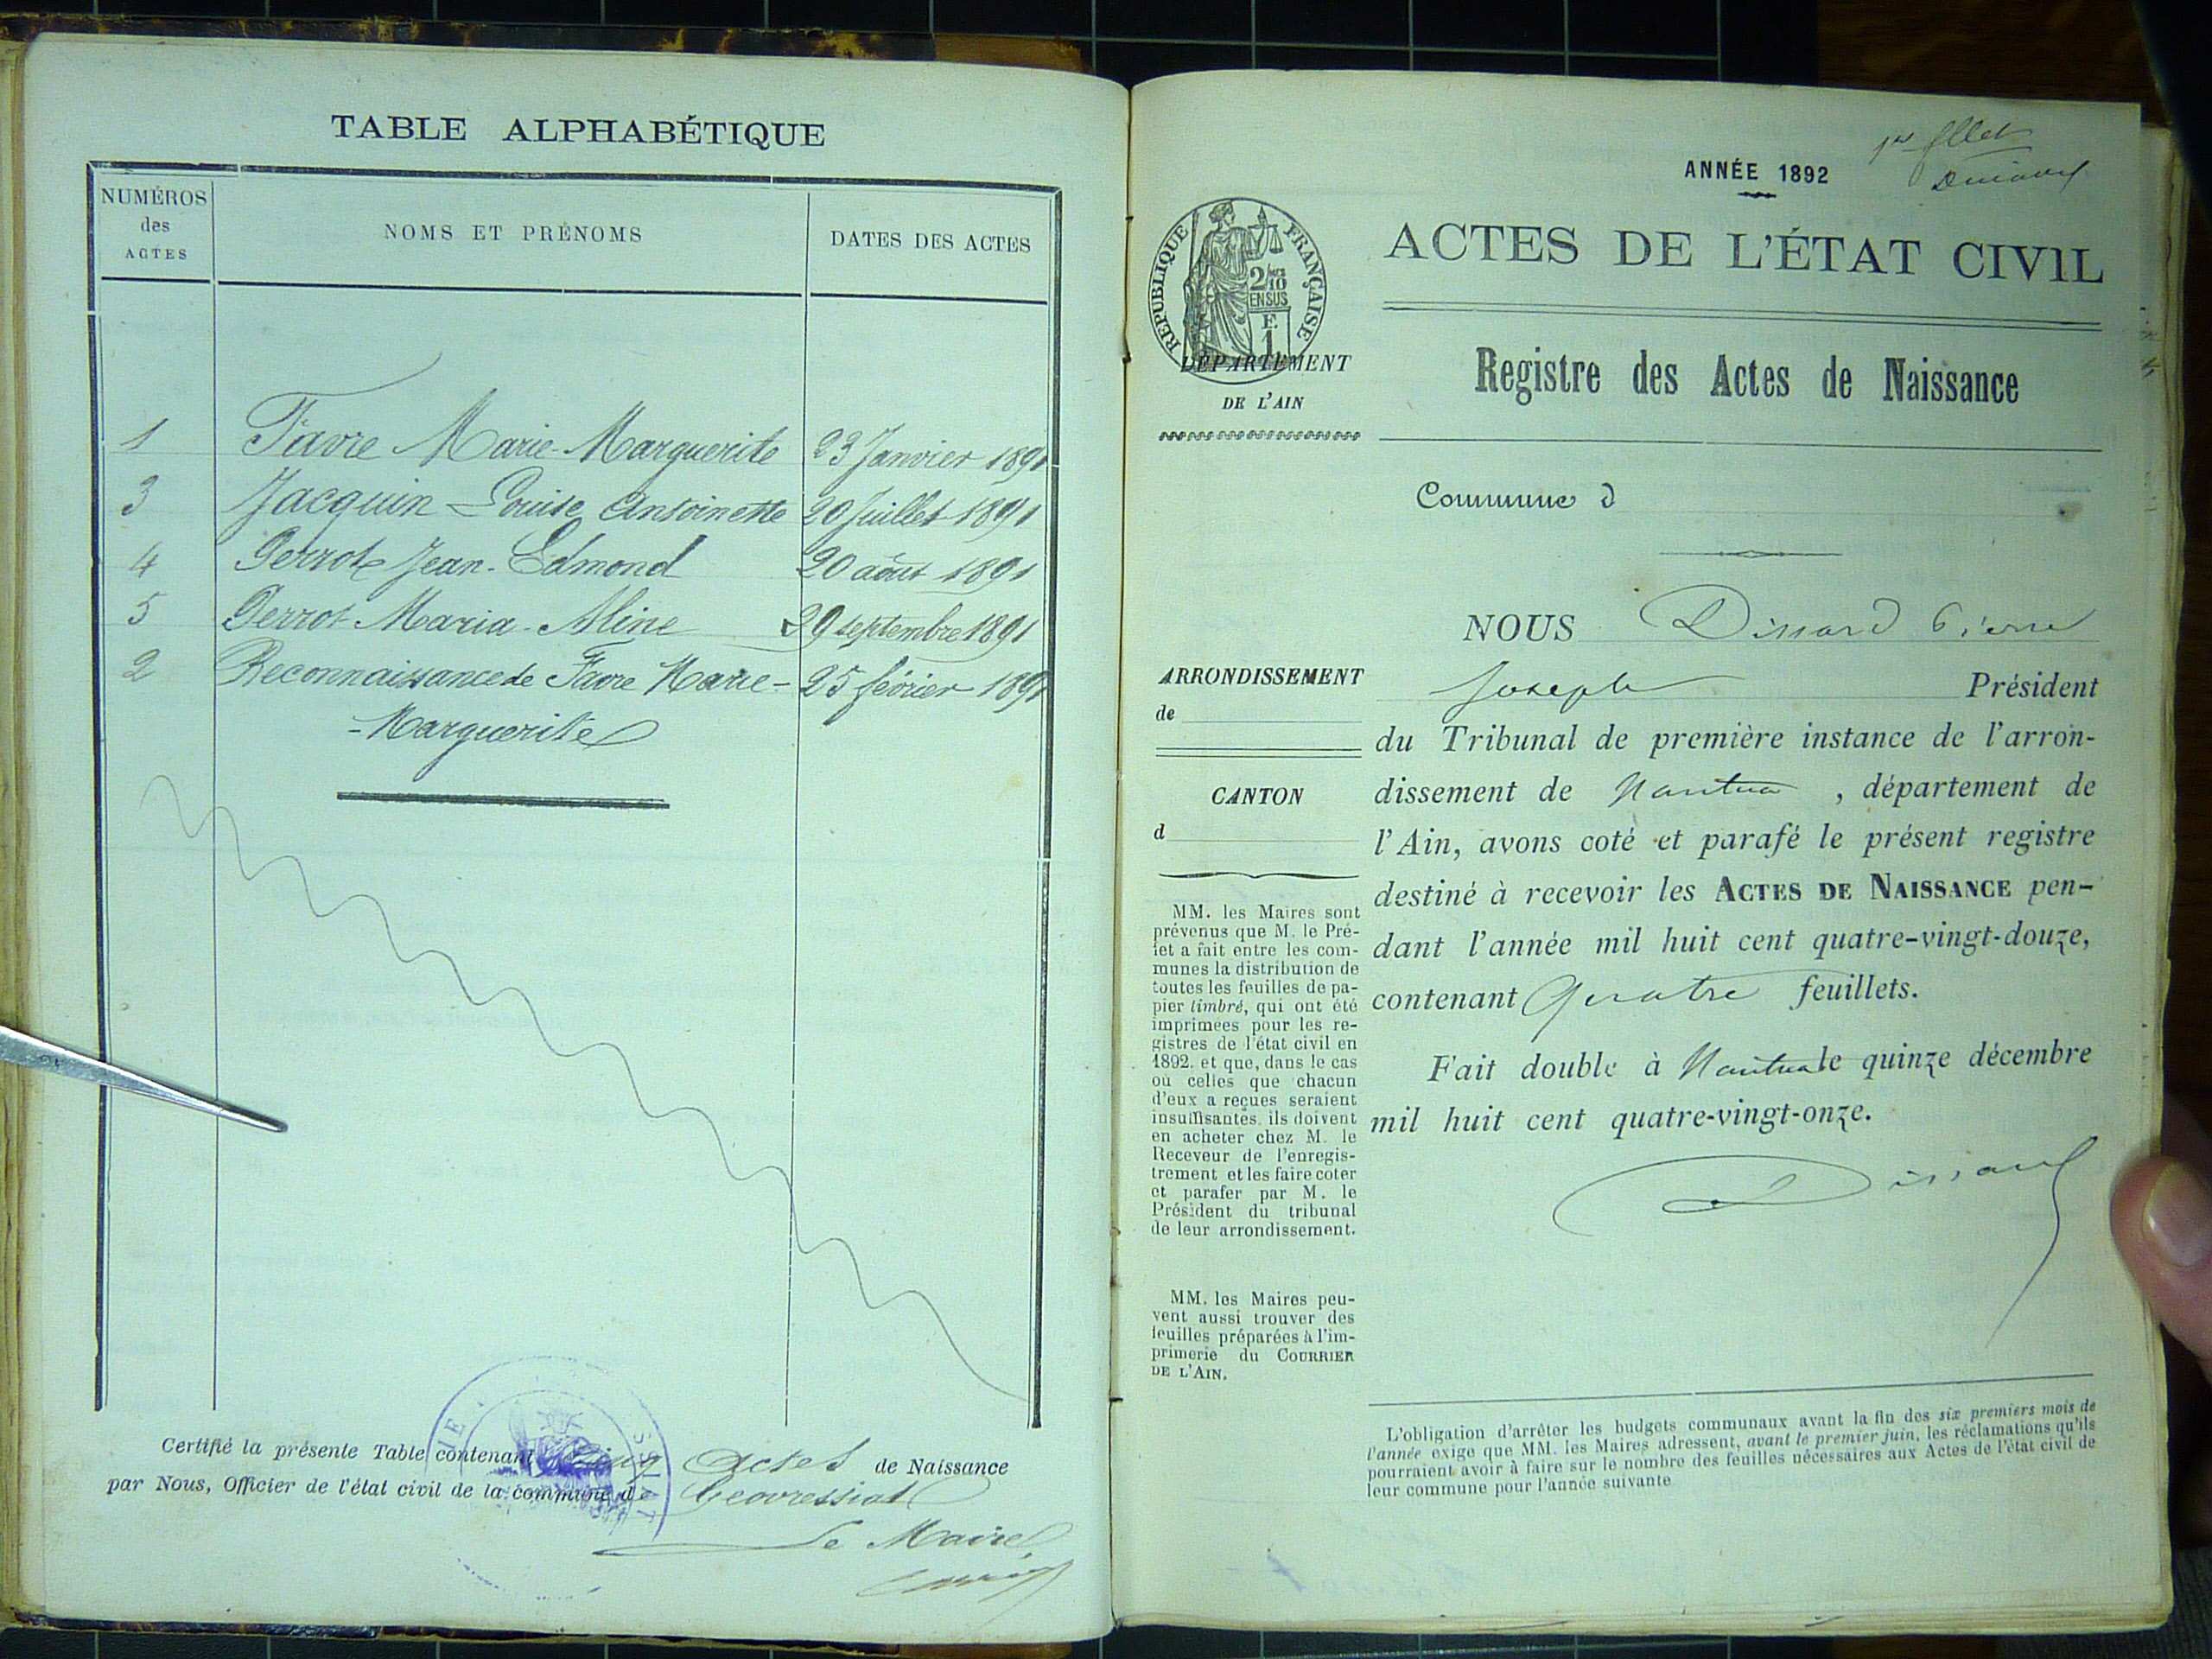 TABLE ALPHABÉTIQUE
NUMÉROS
des
ACTES
NOMS ET PRÉNOMS
DATES DES ACTES
1 Favre Marie-Marguerite 23 Janvier 1891
3 Jacquin Louise Antoinette 20 Juillet 1891
4 Perrot Jean-Edmond 20 août 1891
5 Perrot Maria-Aline 29 septembre 1891
2 Reconnaissance de Favre Marie- 25 février 1891
-Marguerite
Certifié la présente Table contenant cinq Actes de Naissance
par Nous, Officier de l'état civil de la commune de Géovressiat
Le Maire
ANNÉE 1892
1er fllet
Dissard
RÉPUBLIQUE FRANÇAISE
2/10
EN SUS
E
1
ACTES DE L'ÉTAT CIVIL
Registre des Actes de Naissance
DÉPARTEMENT
DE L'AIN
Commune d
ARRONDISSEMENT
de
CANTON
d
NOUS Dissard Pierre
Joseph Président
du Tribunal de première instance de l'arron-
dissement de Nantua, département de
l'Ain, avons coté et parafé le présent registre
destiné à recevoir les ACTES DE NAISSANCE pen-
dant l'année mil huit cent quatre-vingt-douze,
contenant Quatre feuillets.
Fait double à Nantua le quinze décembre
mil huit cent quatre-vingt-onze.
Dissard
MM. les Maires sont
prévenus que M. le Pré-
fet a fait entre les com-
munes la distribution de
toutes les feuilles de pa-
pier timbré, qui ont été
imprimées pour les re-
gistres de l'état civil en
1892, et que, dans le cas
où celles que chacun
d'eux a reçues seraient
insuffisantes, ils doivent
en acheter chez M. le
Receveur de l'enregis-
trement et les faire coter
et parafer par M. le
Président du tribunal
de leur arrondissement.
MM. les Maires peu-
vent aussi trouver des
feuilles préparées à l'im-
primerie du COURRIER
DE L'AIN.
L'obligation d'arrêter les budgets communaux avant la fin des six premiers mois de
l'année exige que MM. les Maires adressent, avant le premier juin, les réclamations qu'ils
pourraient avoir à faire sur le nombre des feuilles nécessaires aux Actes de l'état civil de
leur commune pour l'année suivante